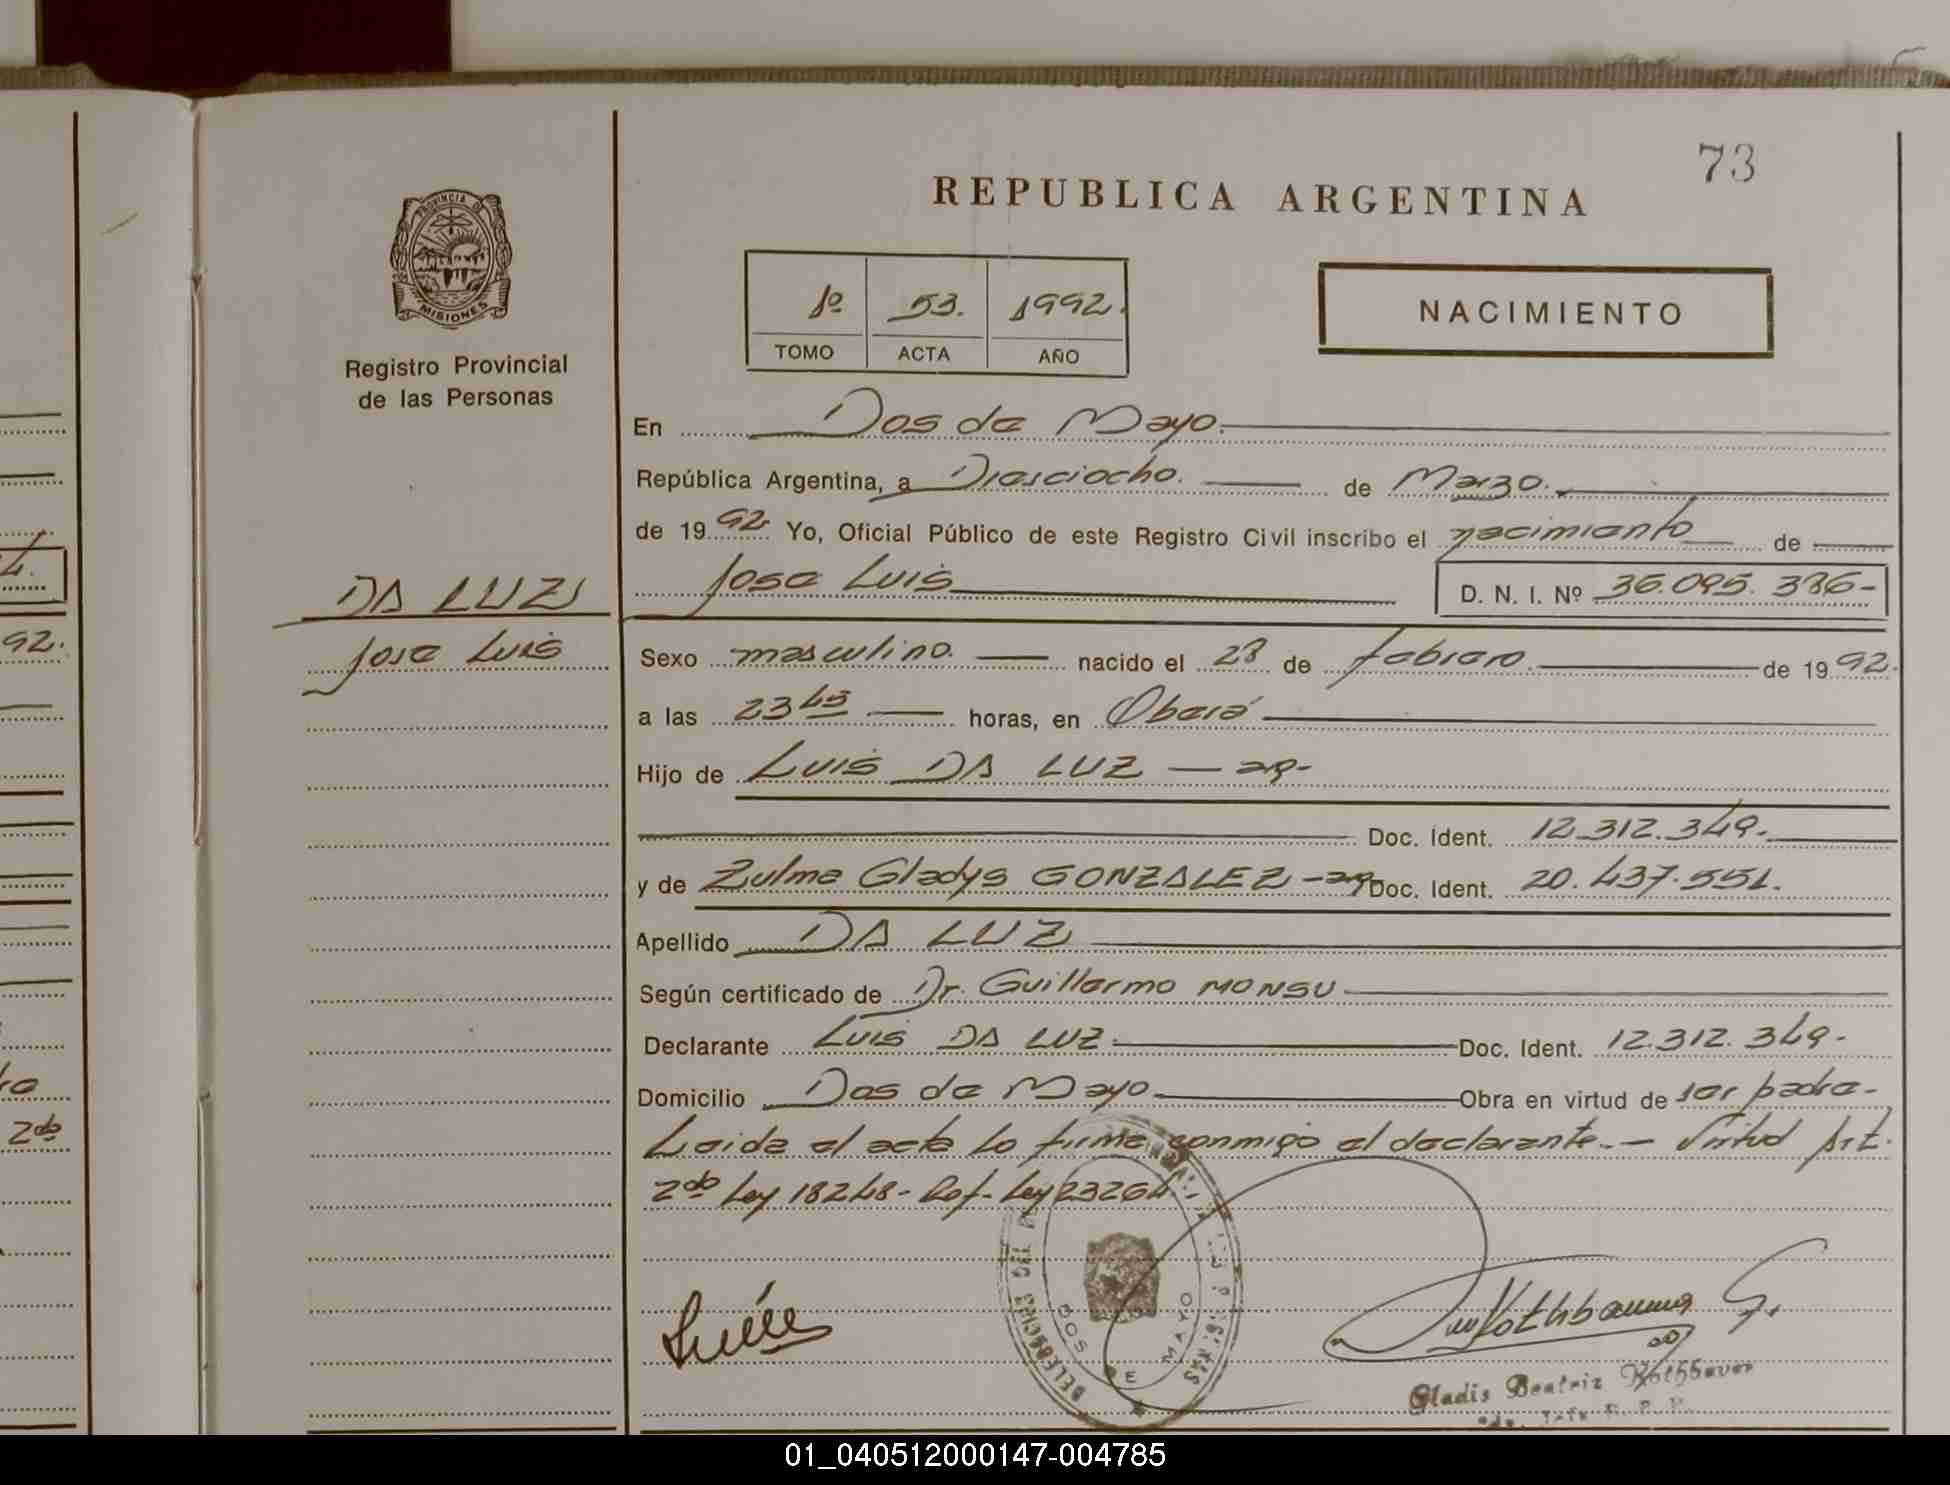 73
REPUBLICA ARGENTINA
PROVINCIA DE
MISIONES
1º 53. 1992.
TOMO ACTA AÑO
NACIMIENTO
Registro Provincial
de las Personas
En Dos de Mayo.
República Argentina, a Diesciocho. de Marzo.
de 1992 Yo, Oficial Público de este Registro Civil inscribo el nacimiento de
Jose Luis D. N. I. Nº 36.095.386-
DA LUZ
Jose Luis
Sexo masculino. nacido el 28 de febrero. de 1992.
a las 23 45 horas, en Oberá
Hijo de Luis DA LUZ — ar-
Doc. Ident. 12.312.349.
y de Zulma Gladys GONZALEZ - ar Doc. Ident. 20.437.551.
Apellido DA LUZ
Según certificado de Dr. Guillermo MONSU
Declarante Luis DA LUZ Doc. Ident. 12.312.349-
Domicilio Dos de Mayo Obra en virtud de ser padre-
Leida el acta lo firma conmigo el declarante.- Virtud Art.
2do Ley 18248- Ref- Ley 23264.
DOS DE MAYO
Gladis Beatriz Rothbauer
92.
2do
01_040512000147-004785